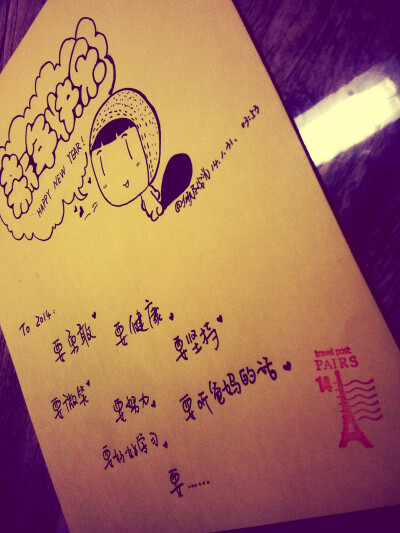 新年快乐
HAPPY NEW YEAR!
14.1.31. 03:53
To 2014.
要勇敢 要健康 要坚持
要微笑 要努力 要听爸妈的话
要好好学习
要……
travel post
PAIRS
14